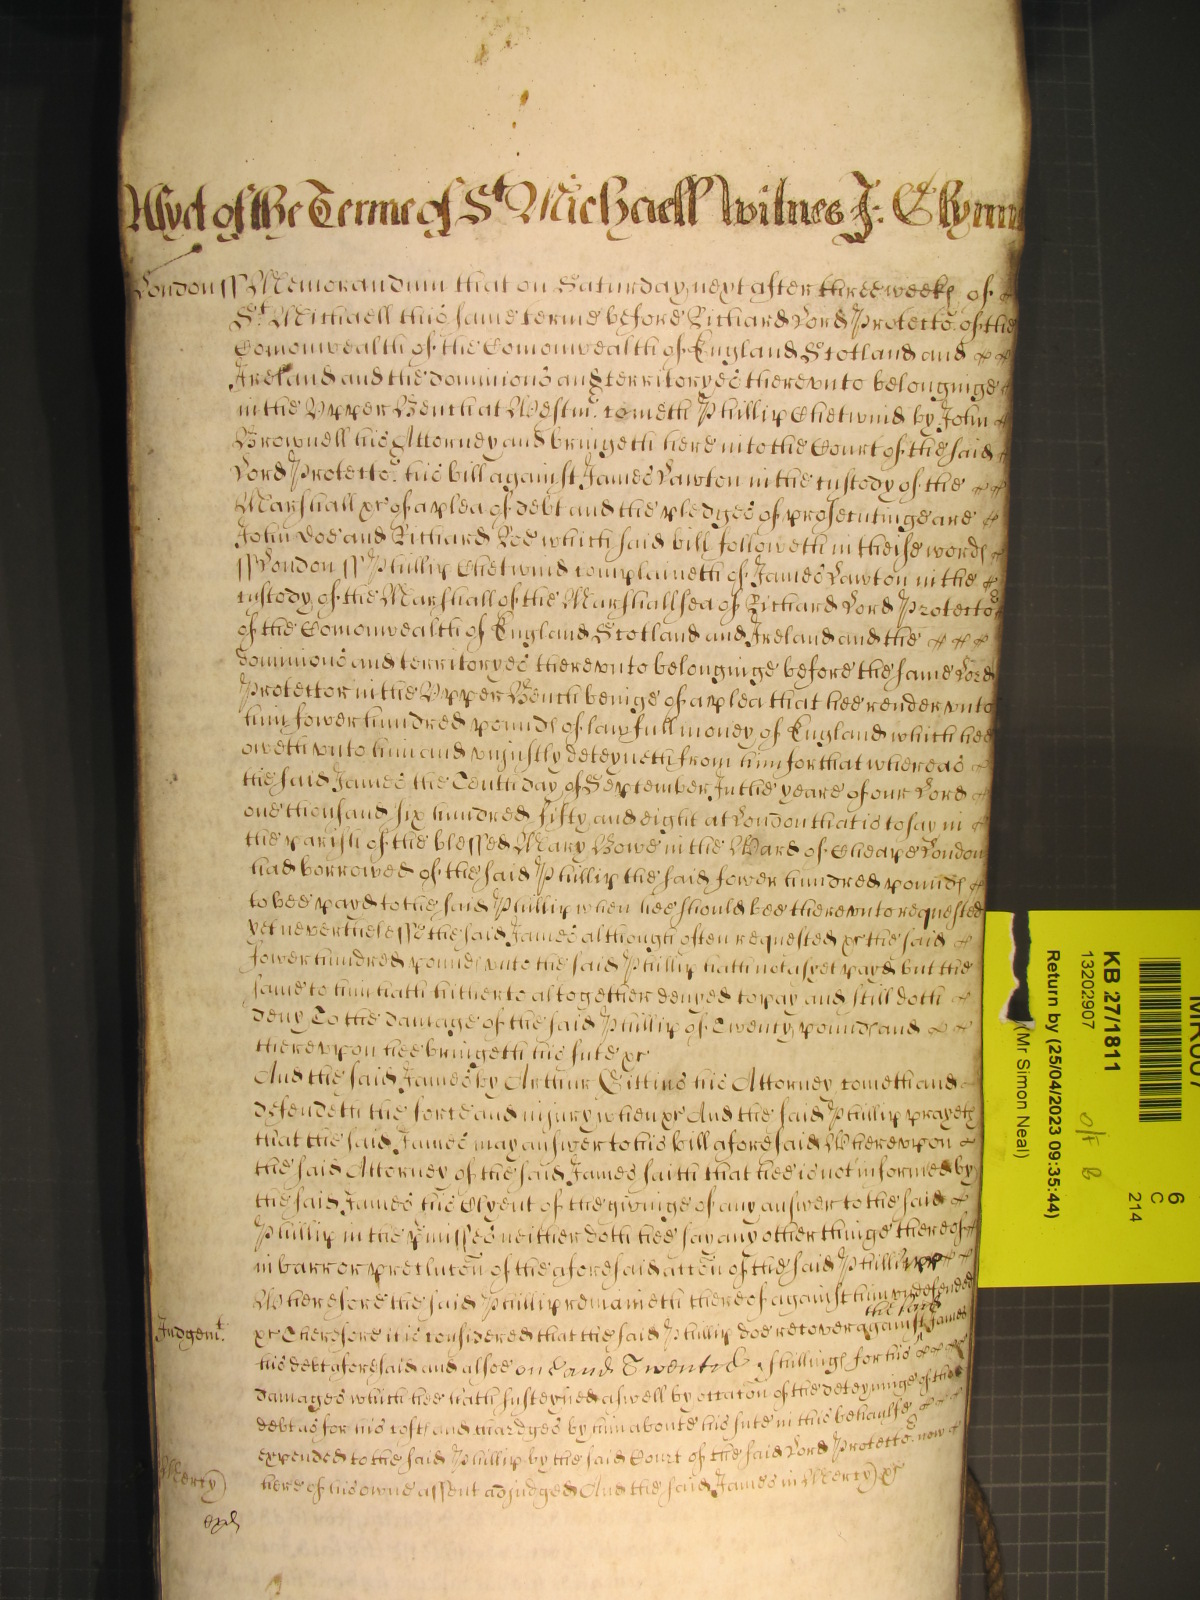 Yet of the Terme of St Michaell Witnes J: Glynne
London ss Memorandum that on Saturday next after three weeks of
St Michaell this same terme before Richard Lord Protector of the
Comonwealth of the Comonwealth of England Scotland and
Ireland and the dominions and territoryes therevnto belonginge
in the Vpper Bench at Westmr. cometh Phillip Chetwind by John
Brownell his Attorney and bringeth here into the Court of the said
Lord Protector his bill against James Lawton in the custody of the
Marshall xc of a plea of debt and the pledges of prosecutinge are
John Doe and Richard Roe which said bill followeth in theise words
ss London ss Phillip Chetwind complaineth of James Lawton in the
custody of the Marshall of the Marshallsea of Richard Lord Protector
of the Comonwealth of England Scotland and Ireland and the
dominions and territoryes therevnto belonginge before the same Lord
Protector in the Vpper Bench beinge of a plea that hee render vnto
him fower hundred pounds of lawfull money of England which hee
oweth vnto him and vnjustly deteyneth from him for that whereas
the said James the Tenth day of September In the yeare of our Lord
one thousand six hundred fifty and eight at London that is to say in
the parish of the blessed Mary Bowe in the Ward of Cheape London
had borrowed of the said Phillip the said fower hundred pounds
to bee payd to the said Phillip when hee should bee therevnto requested
yet neverthelesse the said James although often requested xc the said
fower hundred pounds vnto the said Phillip hath not as yet payd but the
same to him hath hitherto altogether denyed to pay and still doth
deny To the damage of the said Phillip of Twenty pounds and
therevpon hee bringeth his sute xc
And the said James by Arthur Gittins his Attorney cometh and
defendeth the force and injury when xc And the said Phillip prayeth
that the said James may answer to his bill aforesaid Wherevpon
the said Attorney of the said James saith that hee is not informed by
the said James his Clyent of the givinge of any answer to the said
Phillip in the pmisses neither doth hee say any other thinge thereof
in barr or preclucon of the aforesaid accon of the said Phillip
Wherefore the said Phillip remaineth thereof against him vndefended
the said
Judgemt. xc Therefore it is considered that the said Phillip doe recover against James
his debt aforesaid and alsoe one and Twentie shillings for his
damages which hee hath susteyned aswell by occacon of the deteyninge of the
debt as for his costs and chardges by him aboute his sute in this behaulfe
expended to the said Phillip by the said Court of the said Lord Protector now
Mercy) here of his owne assent adjudged And the said James in Mercy) xc
KB 27/1811
13202907
Return by (25/04/2023 09:35:44)
(Mr Simon Neal)
6
C
214